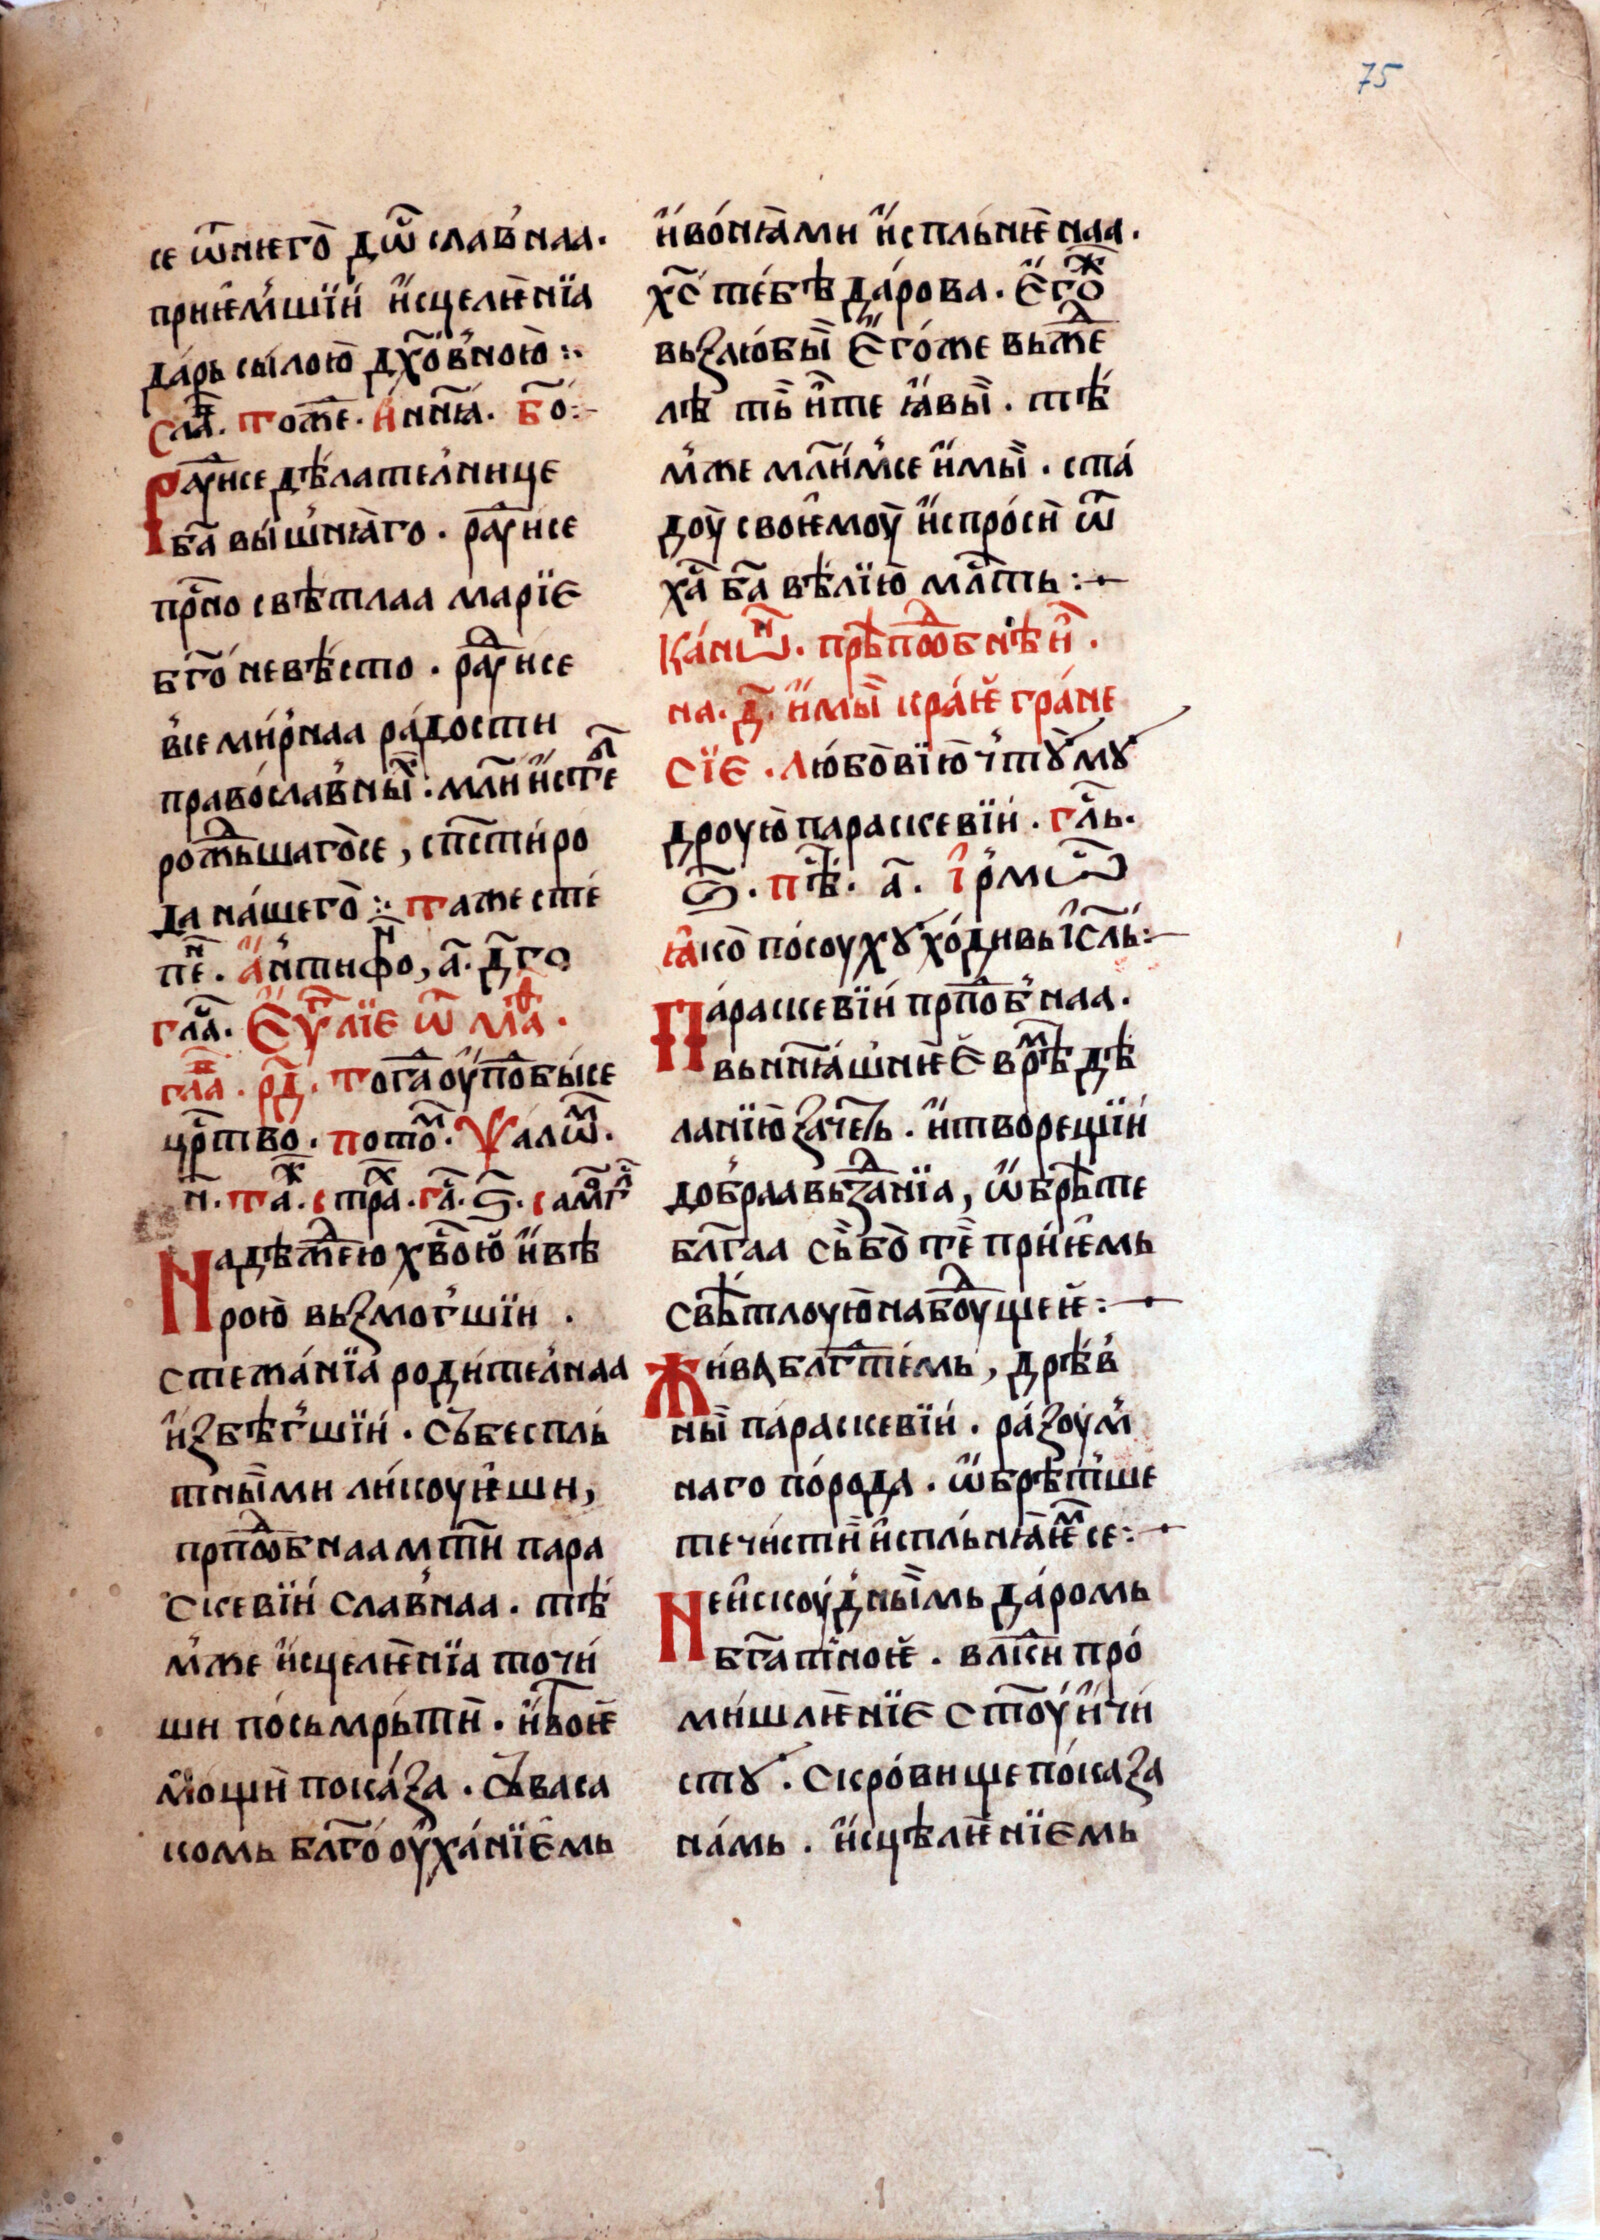 75
се ѿнѥго̀ дѿ славнаа·
прїѥ́мшїи и҆сцелѥ́нїа
да́рь сы́лою дх҃о́вною:·
Сла҃. тоже. и҆ нн҃ꙗ. бо҃:-
Раꙋ҃исе дѣлателнице
ба҃ вы́шнꙗго. раꙋ҃исе
прⷭ҇но свѣтлаа марїе
бг҃о́ невѣсто. раⷣꙋисе
в̾се ми́рнаа ра́дости
право́славныⷯ: мл҃и и҆стеⷧ
роⷤшагосе, спⷭ҇ти́ ро́
да на́шего:· таже сте́
пеⷩ. а҆нтифоⷩ, а҃. д҃го
гла҃. Еѵⷢ҇лїе ѿ маⷴ.
глаⷡ. рд҃. тогда оу҆поⷣбы́се
црⷭ҇тво́. потоⷨ. Ѱалѡⷨ.
н҃. таⷤ. стра̑ⷯ. гл҃. ѕ҃. самоⷢ҇ⷧ
Надѣжⷣею хв҃о́ю и҆ вѣ
рою̀ вьзмогшїи.
стежа́нїа роди́телнаа
и҆збѣ́гшїи. съ бесплъ
тны́ми ли́коуѥши,
прпⷣо́бнаа мт҃и пара
скевїи́ славнаа. тѣ́
м̾же и҆сцелѥ́нїа точи́
ши по́сьмрьти. и҆ твоѥ
мощи пока́за. съ васа
комь блг҃о́ оу҆ха́нїемь
и҆ во́нꙗми и҆спль́нѥнаа.
хс҃ те́бѣ да́рова. Е҆го́ⷤ
вьзлю́бы Е҆го́же вьжⷣе
лѣ ты и҆те ꙗ҆вы̀. тѣ́
м̾же мл҃и́мсе и҆мы̀. ста́
доу̀ своѥмоу̀ и҆спро́си ѿ
ха҃ ба҃ вѣлїю млⷭ҇ть:-
Ка́нѡⷩ. прѣпоⷣбнѣи.
на. д҃. и҆мы̀ кра́ѥ гра́не
сїе. Любо́вїю ч̾тꙋ̀ мꙋ
дроую параскевїи. гл҃ь.
ѕ҃. пѣⷭ҇. а҃. І҆рмѡⷭ҇
Ꙗко по́соухꙋ̀ хо́дивь і҆сл҃ь:-
Параскевїи прпⷣо́бнаа.
вь нн҃ꙗшнѥе врѣⷨ дѣ
ланїю зачеть. и҆ творещїи
добраа вьзⷣа́нїа, ѡ҆брѣте
блг҃аа сь̀ бо те прїи́ѥмь
свѣтлоую на боⷣꙋщеѥ:-
Жи́ва блгⷣте́мь, дрѣв̾
ны̀ параскевїи. ра́зоум̾
наго по́рода. ѡ҆брѣт̾ше
те чи́стїи и҆спльнꙗѥⷨ се:-
Неи҆скоуд̾ны́мь да́ромь
бг҃ати́ноѥ. влⷣки про́
ми́шлѥнїе ст҃оу́ и҆ чи́
стꙋ. скро́вище по́каза
на́мь. и҆сцѣлѥ́нїемь